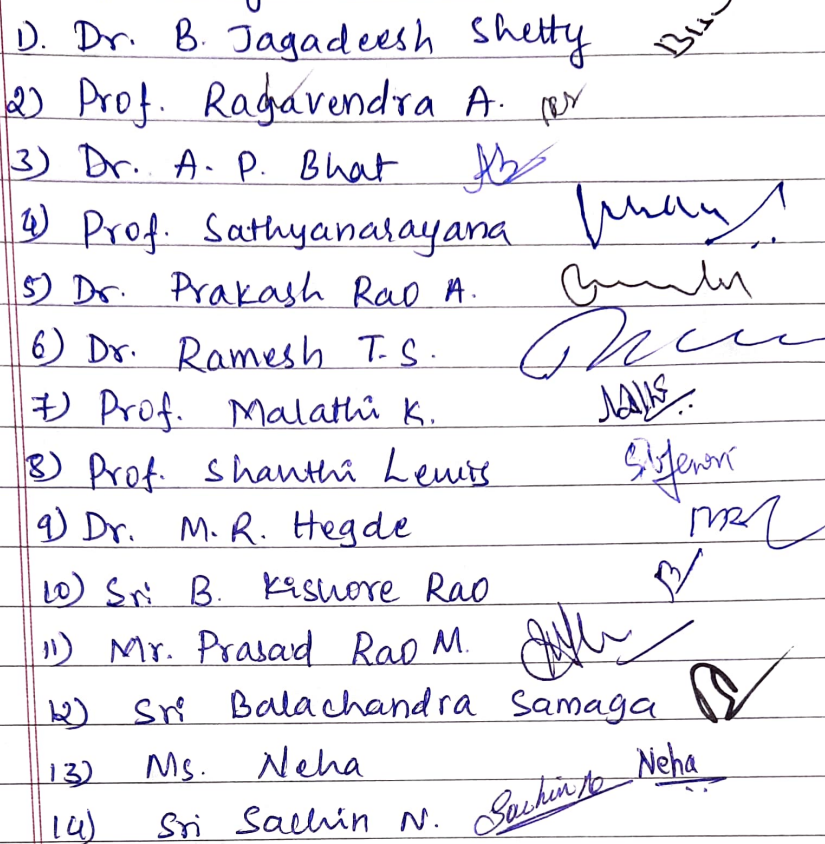 1). Dr. B. Jagadeesh Shetty
2) Prof. Ragavendra A.
3) Dr. A. P. Bhat
4) Prof. Sathyanarayana
5) Dr. Prakash Rao A.
6) Dr. Ramesh T.S.
7) Prof. Malathi K.
8) Prof. Shanthi Lewis
9) Dr. M.R. Hegde
10) Sri B. Kishore Rao
11) Mr. Prasad Rao M.
12) Sri Balachandra Samaga
13) Ms. Neha Neha
14) Sri Sachin N. Sachin N